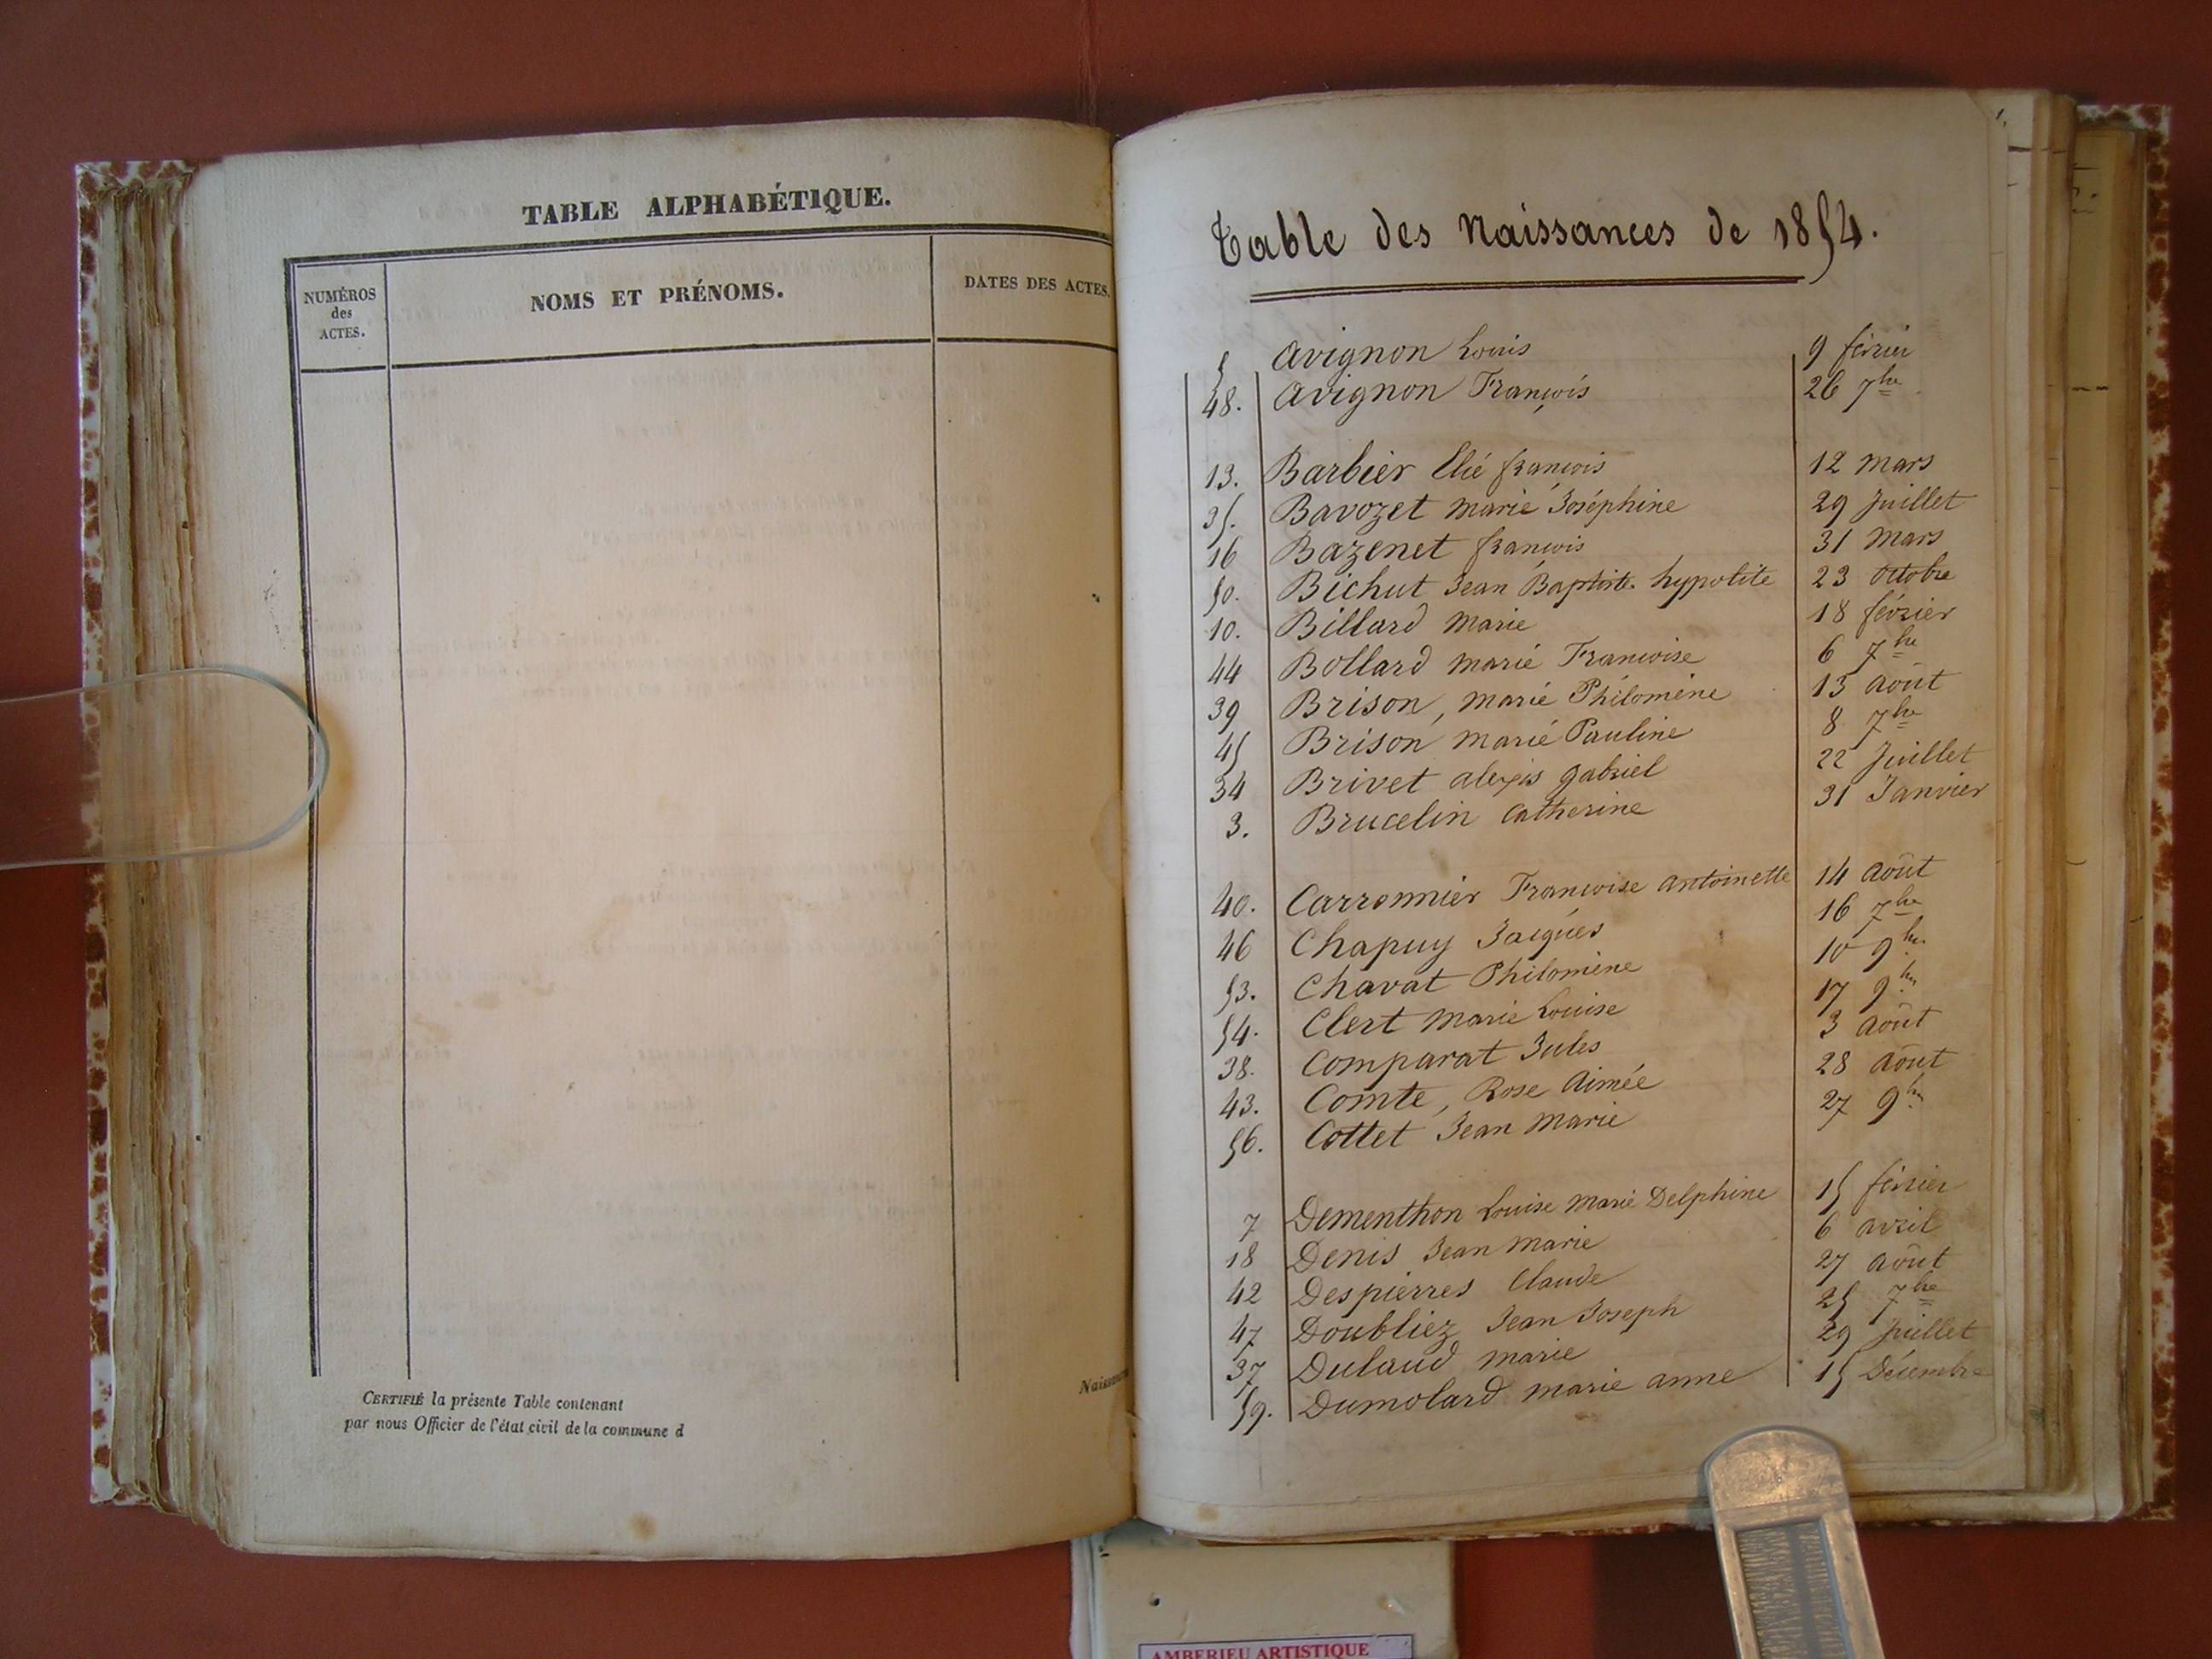 TABLE ALPHABÉTIQUE.
NUMÉROS
des
ACTES.
NOMS ET PRÉNOMS.
DATES DES ACTES.
CERTIFIÉ la présente Table contenant
par nous Officier de l'état civil de la commune d
Table des Naissances de 1854.
5 Avignon Louis 9 février
48. Avignon François 26 7bre
13. Barbier Elié françois 12 mars
35. Bavozet marie Joséphine 29 Juillet
16 Bazenet françois 31 Mars
50. Bichut Jean Baptiste hypolite 23 Octobre
10. Billard Marie 18 février
44 Bollard marié Françoise 6 7bre
39 Brison, marié Philomène 13 Août
45 Brison marié Pauline 8 7bre
34 Brivet alexis gabriel 22 Juillet
3. Brucelin Catherine 31 Janvier
40. Carronnier Françoise antoinette 14 Août
46 Chapuy Jacques 16 7bre
53. Chavat Philomène 10 9bre
54. Clert Marie Louise 17 9bre
38. Comparat Jules 3 Août
43. Comte, Rose Aimée 28 Août
56. Cottet Jean Marie 27 9bre
7 Dementhon Louise Marie Delphine 15 février
18 Denis Jean Marie 6 avril
42 Despierres Claude 27 Août
47 Doubliez Jean Joseph 25 7bre
37 Dulaud Marie 29 Juillet
59. Dumolard marie anne 15 Décembre
AMBERIEU ARTISTIQUE